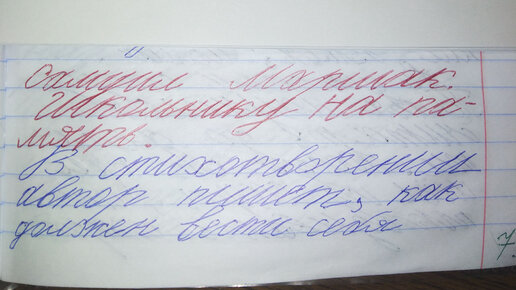 Самуил Маршак.
Школьнику на па-
мять.
В стихотворении
автор пишет, как
должен вести себя
7.